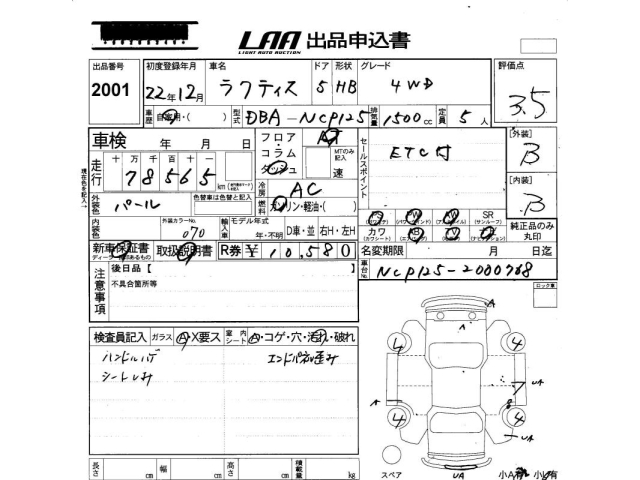 LAA 出品申込書
LIGHT AUTO AUCTION
出品番号 初度登録年月 車名 ドア 形状 グレード 評価点
2001 22年12月 ラクティス 5 HB 4WD 3.5
車歴 自家用・( ) 型式 DBA-NCP125 排気量 1500cc 定員 5人
車検 年 月 日 フロア・コラム ダッシュ AT MTのみ記入 速 セールスポイント ETC付 [外装] B
走行 十 万 千 百 十 78565 km
冷房 AC [内装] B
外装色 パール 色替車は色替と記入 燃料 ガソリン・軽油・( )
内装色 外装カラーNo. 070 輸入車 モデル年式 年・不明 D車・並 右H・左H
SR (サンルーフ)
カワ (カワシート) 純正品のみ丸印
新車保証書 ディーラー印のあるもの 取扱説明書 R券 ¥10,580 名変期限 月 日迄
注意事項 後日品【 車台No. NCP125-2000768
不具合箇所等 ロック車
検査員記入 ガラス A・X要ス 室内シート A・コゲ・穴・汚れ・破れ
ハンドルハゲ エンドパネル歪み
4 4
7 UA
A
4 4
UA
長さ cm 幅 cm 高さ cm 積載量 kg スペア UA 小A有 小U有